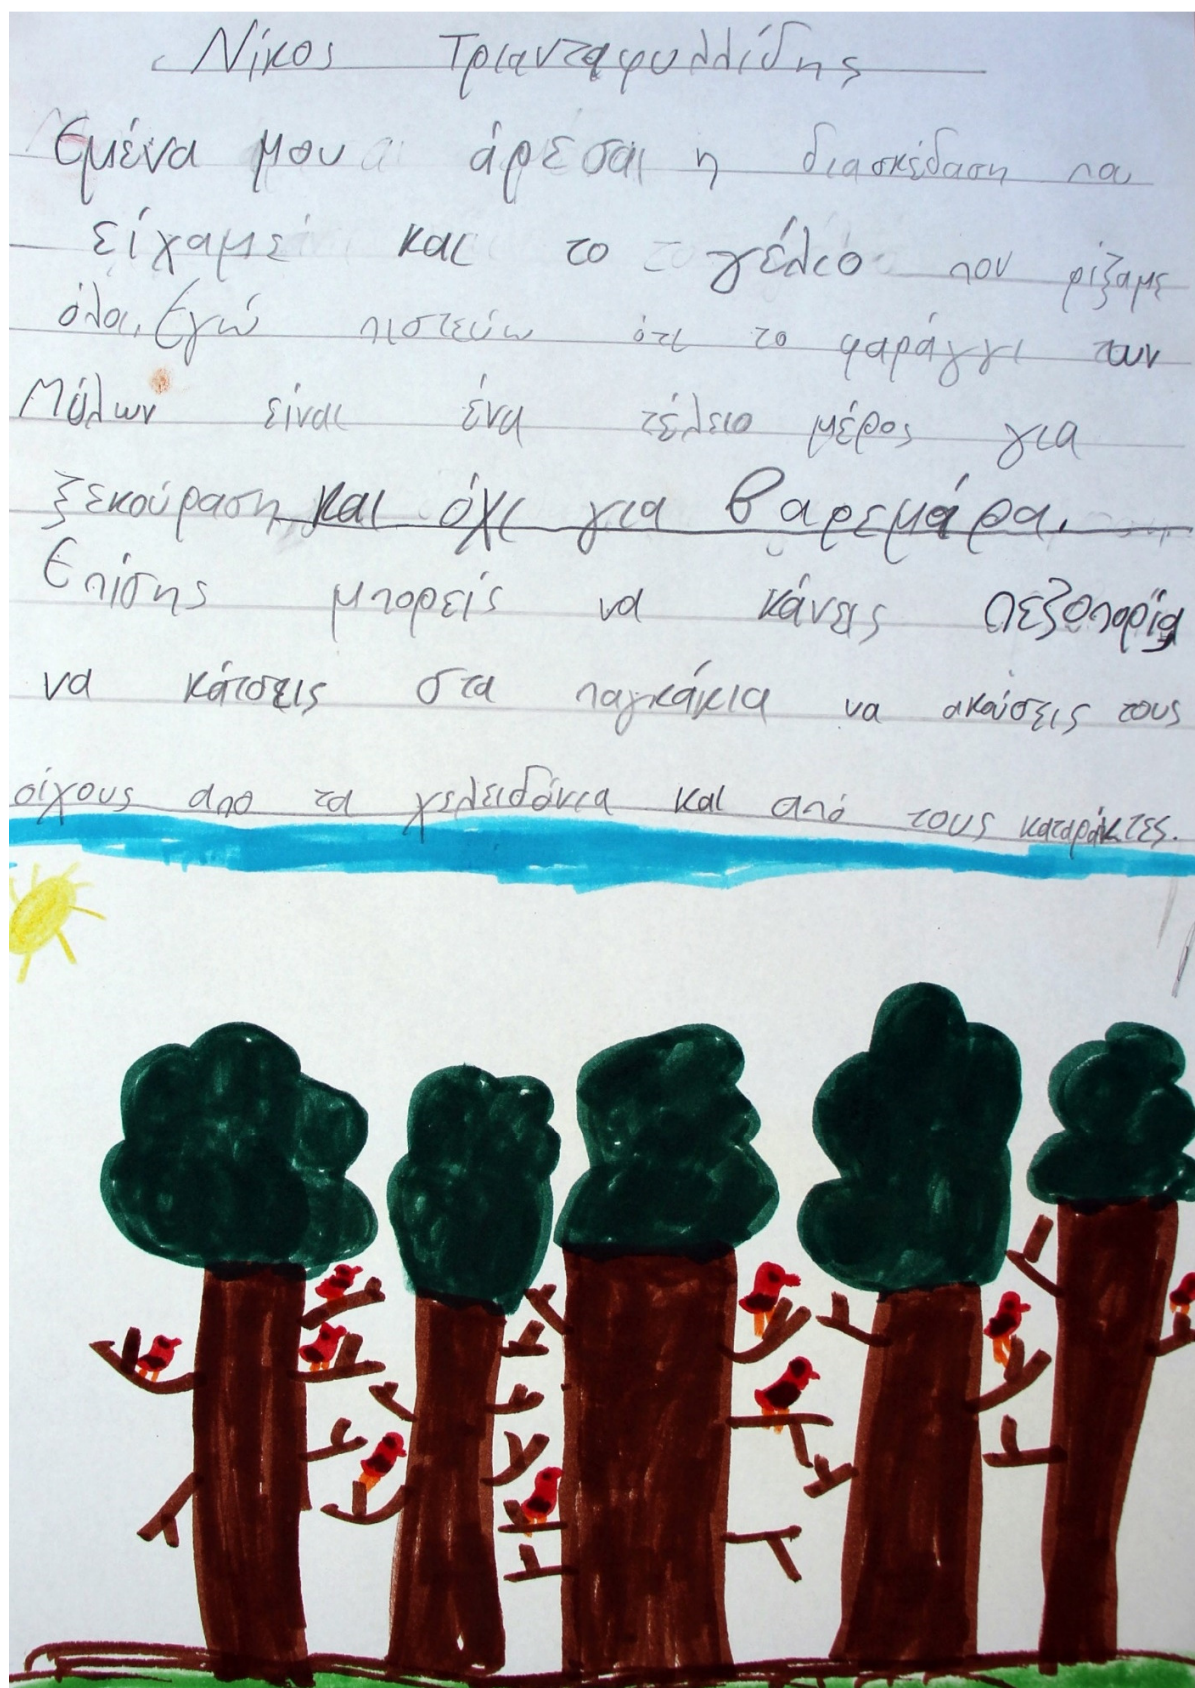 Νίκος Τριανταφυλλίδης
Εμένα μου άρεσαι η διασκέδαση που
είχαμε και το γέλιο που ρίξαμε
όλοι. Εγώ πιστεύω ότι το φαράγγι των
Μύλων είναι ένα τέλειο μέρος για
ξεκούραση και όχι για βαρεμάρα.
Επίσης μπορείς να κάνεις πεζοπορία
να κάτσεις στα παγκάκια να ακούσεις τους
οίχους απο τα χελειδόνια και από τους καταράκτες.